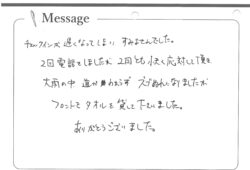 Message
チェックインが 遅くなってしまい すみませんでした。
2回 電話をしましたが 2回とも 快く 応対して頂き
大雨の中 道が わからず ズブぬれになりましたが
フロントで タオルを 貸して 下さいました。
ありがとうございました。